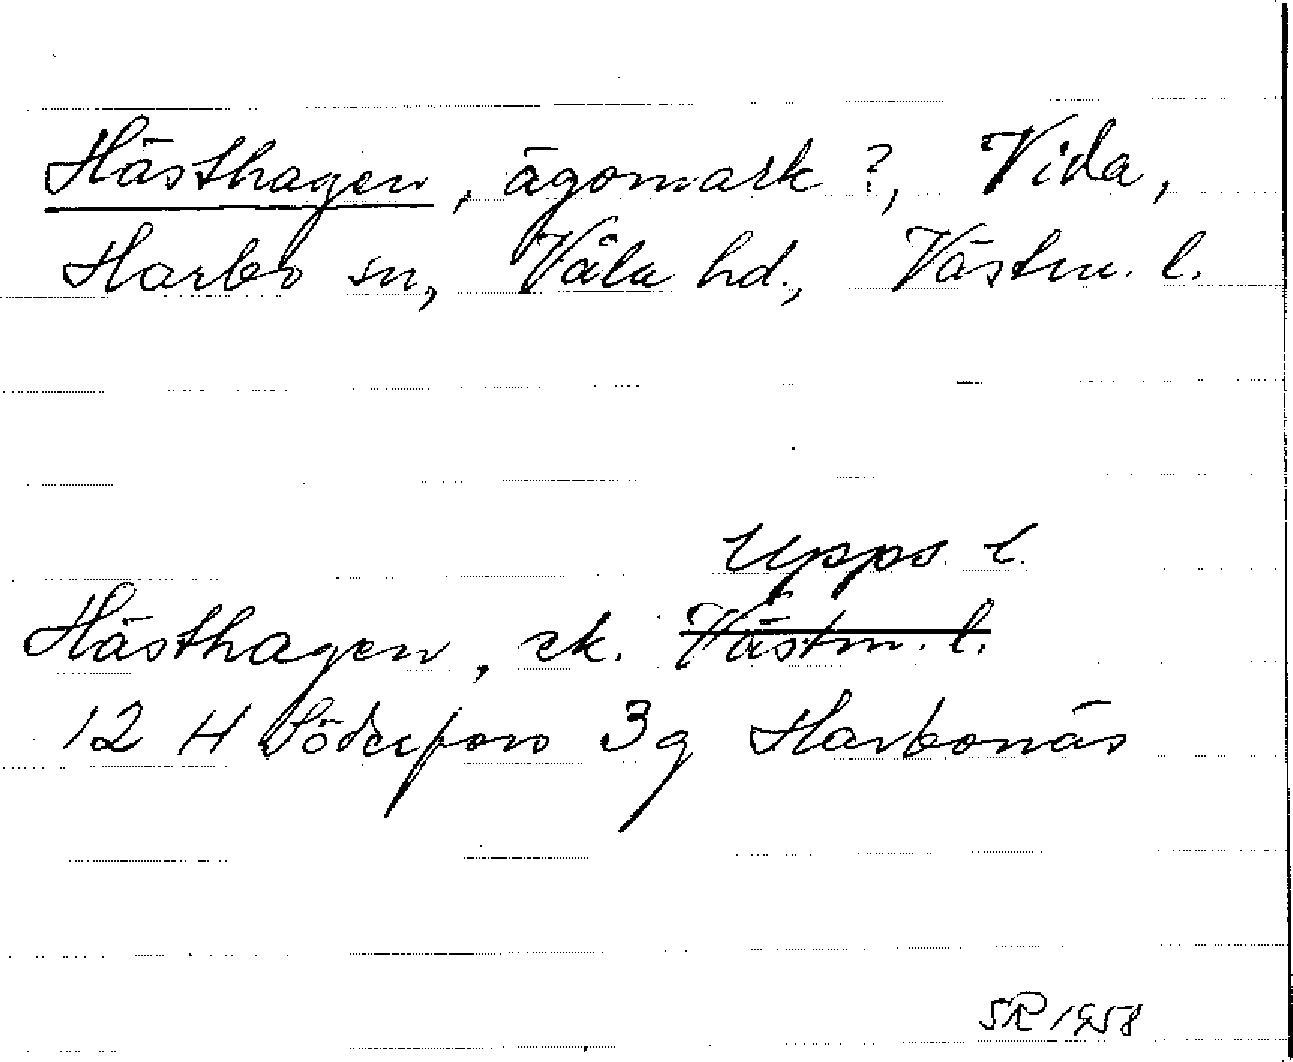 Hästhagen, ägomark ?, Vida,
Harbo sn, Våla hd., Västm. l.
Upps. l.
Hästhagen, ek. Västm. l.
12 H Söderfors 3g Harbonäs
SR 1958